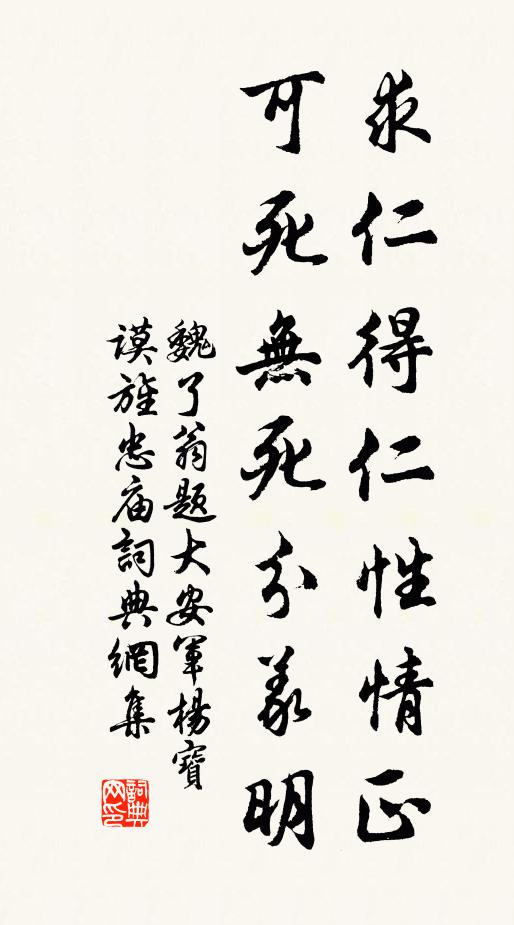 求仁得仁性情正
可死無死分義明
魏了翁题大安軍楊寶
謨旌忠庙詞典網集
詞典
网印